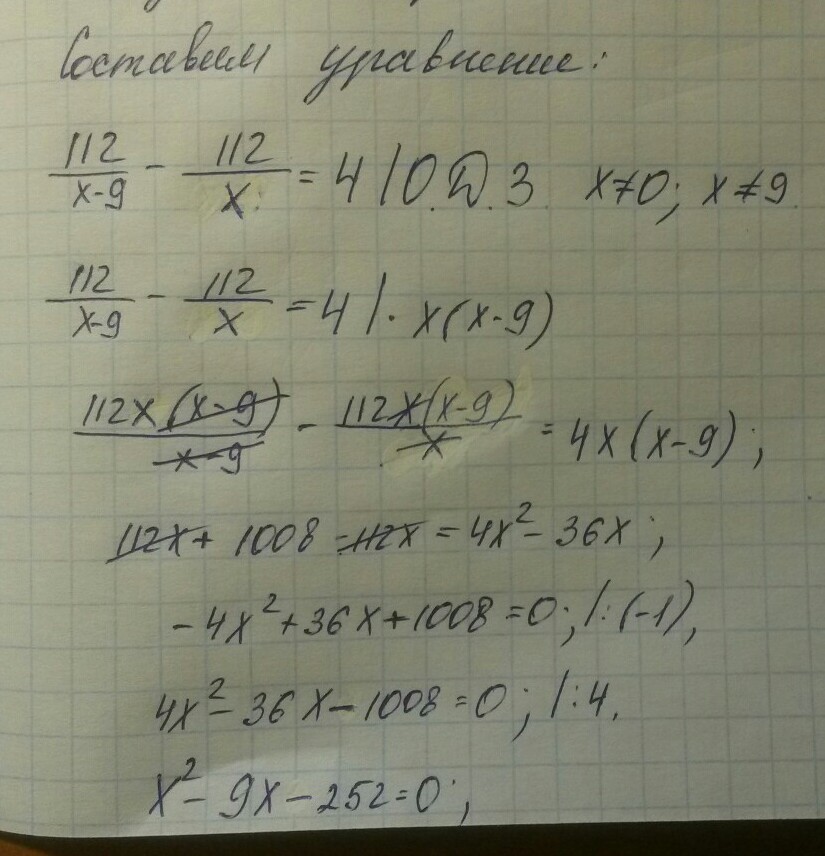 Составим уравнение:
112/(x-9) - 112/x = 4 | О.Д.З. x≠0; x≠9.
112/(x-9) - 112/x = 4 | · x(x-9)
112x(x-9)/(x-9) - 112x(x-9)/x = 4x(x-9);
112x + 1008 - 112x = 4x² - 36x;
-4x² + 36x + 1008 = 0; |:(-1),
4x² - 36x - 1008 = 0; |:4.
x² - 9x - 252 = 0;